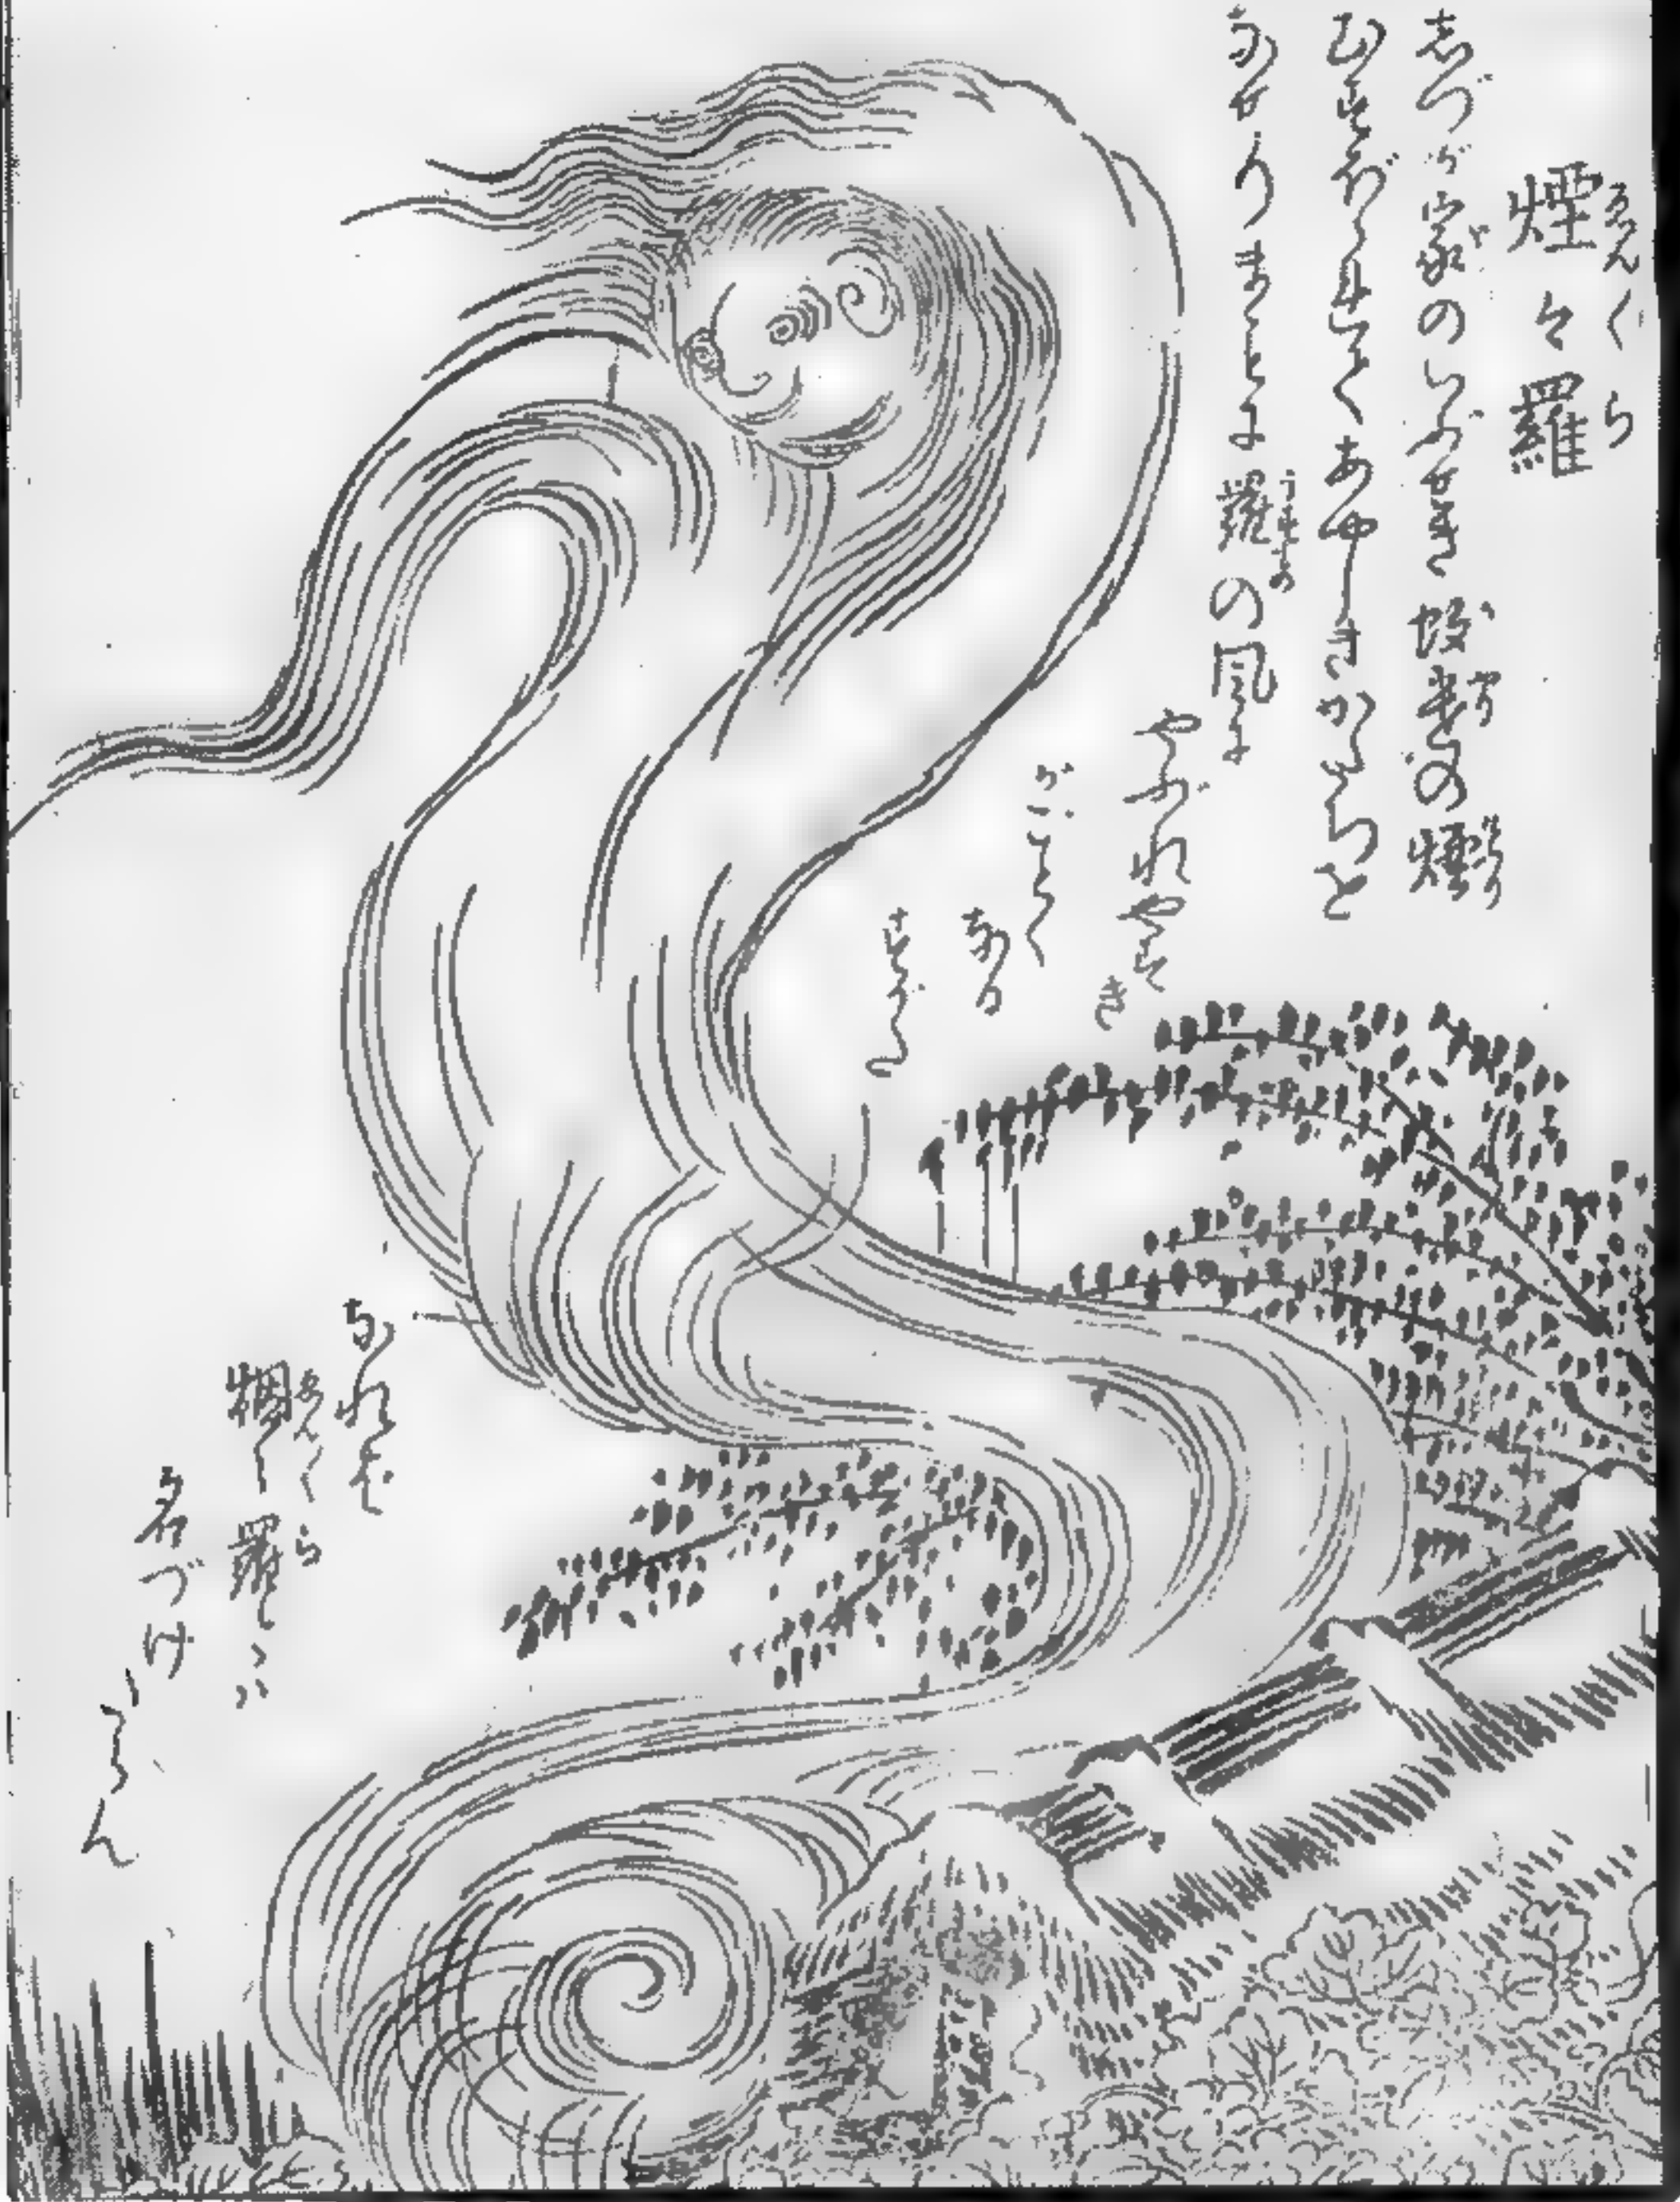 煙々羅
ゑんゝら
しづが家のいぶせき蚊遣の煙
むすぼゝれてあやしきかたちを
なせりまことに羅の風に
やぶれやすき
がごとく
なる
すがた
なれば
烟々羅とは
名づけ
たらん